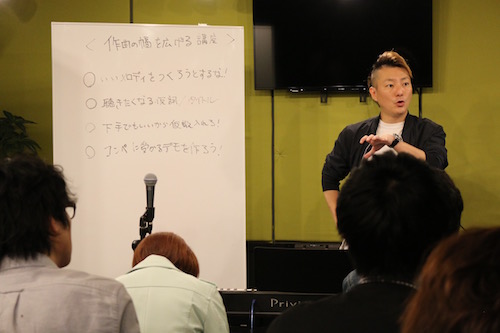 < 作曲の幅を広げる 講座 >
○ いいメロディをつくろうとするな!
○ 聴きたくなる仮詞/タイトル
○ 下手でもいいから仮歌入れろ!
○ コンペに受かるデモを作ろう!
Privi